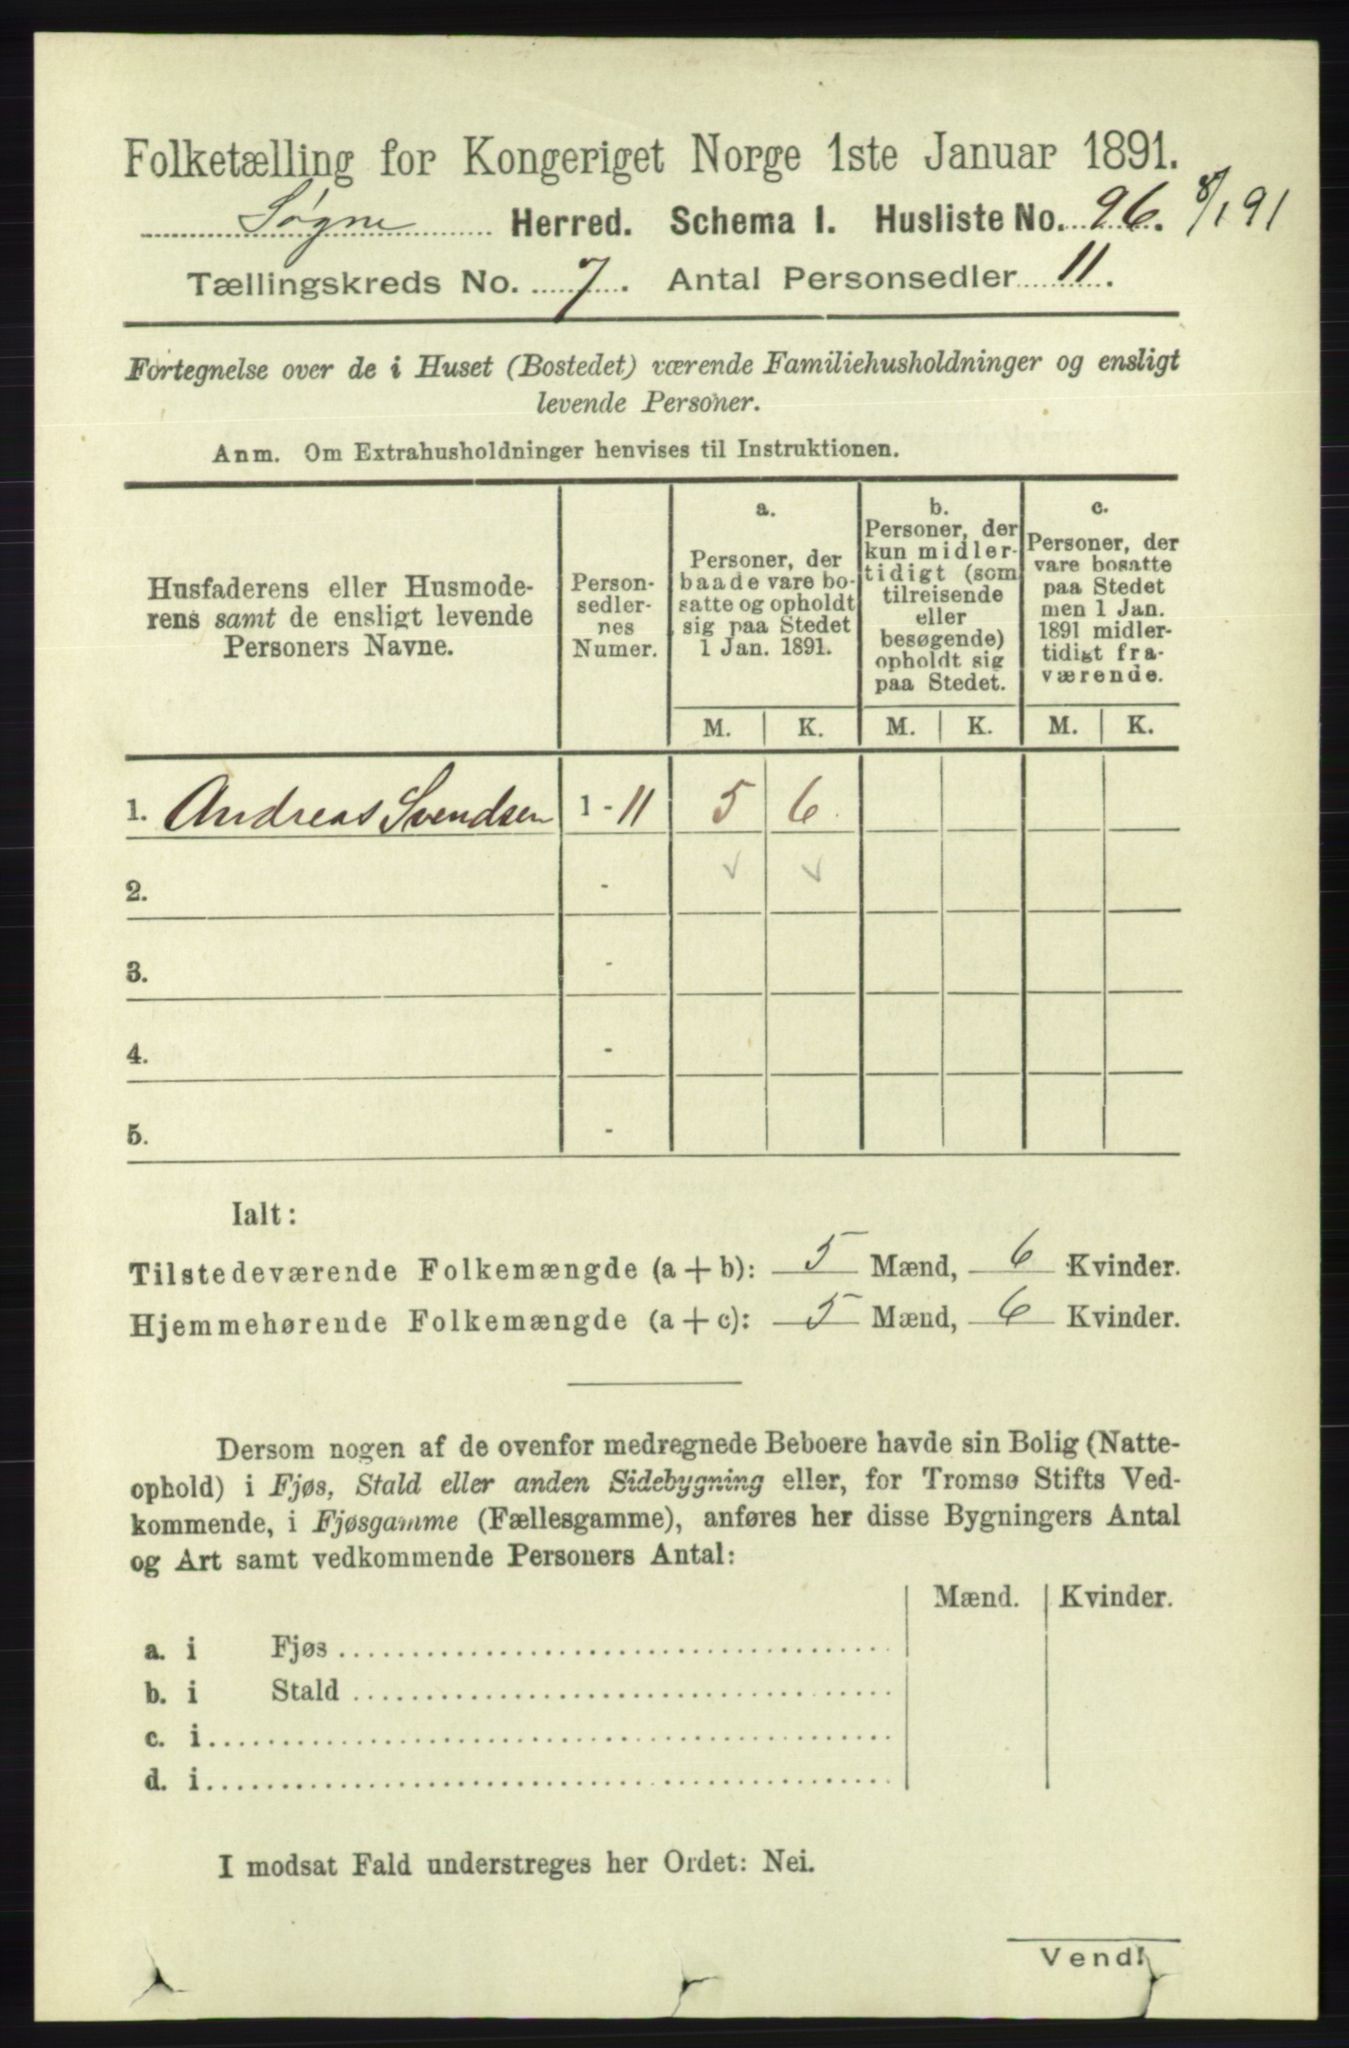 Folketælling for Kongeriget Norge 1ste Januar 1891.
Søgne Herred. Schema I. Husliste No. 96. 8/1 91
Tællingskreds No. 7. Antal Personsedler 11.
Fortegnelse over de i Huset (Bostedet) værende Familiehusholdninger og ensligt
levende Personer.
Anm. Om Extrahusholdninger henvises til Instruktionen.
Husfaderens eller Husmode-
rens samt de ensligt levende
Personers Navne.
Person-
sedler-
nes
Numer.
a.
Personer, der
baade vare bo-
satte og opholdt
sig paa Stedet
1 Jan. 1891.
b.
Personer, der
kun midler-
tidigt (som
tilreisende
eller
besøgende)
opholdt sig
paa Stedet.
c.
Personer, der
vare bosatte
paa Stedet
men 1 Jan.
1891 midler-
tidigt fra-
værende.
M. K. M. K. M. K.
1. Andreas Svendsen 1 - 11 5 6
2. -
3. -
4. -
5. -
Ialt:
Tilstedeværende Folkemængde (a + b): 5 Mænd, 6 Kvinder.
Hjemmehørende Folkemængde (a + c): 5 Mænd, 6 Kvinder.
Dersom nogen af de ovenfor medregnede Beboere havde sin Bolig (Natte-
ophold) i Fjøs, Stald eller anden Sidebygning eller, for Tromsø Stifts Ved-
kommende, i Fjøsgamme (Fællesgamme), anføres her disse Bygningers Antal
og Art samt vedkommende Personers Antal:
Mænd. Kvinder.
a. i Fjøs
b. i Stald
c. i
d. i
I modsat Fald understreges her Ordet: Nei.
Vend!